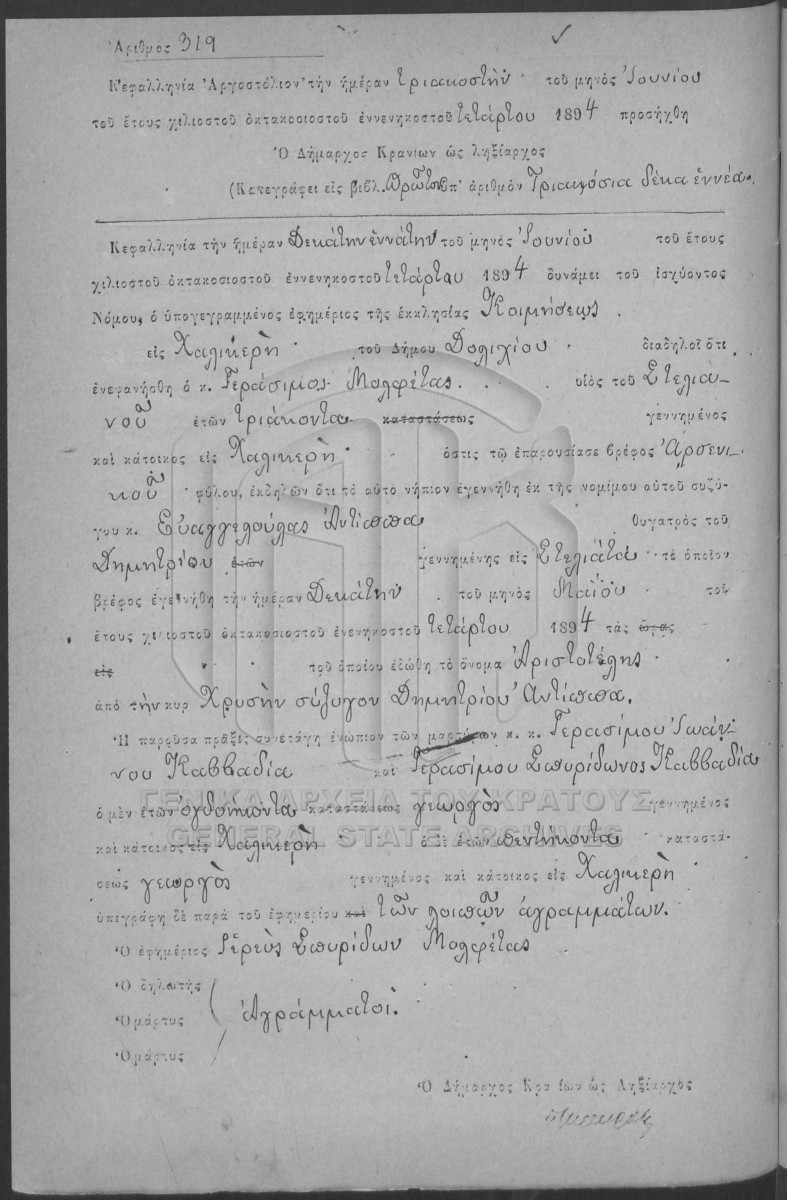 Ἀριθμος 319
Κεφαλληνία Ἀργοστόλιον τὴν ἡμέραν τριακοστὴν τοῦ μηνὸς Ἰουνίου
τοῦ ἔτους χιλιοστοῦ ὀκτακοσιοστοῦ ἐννενηκοστοῦ τετάρτου 1894 προσήχθη
Ὁ Δήμαρχος Κρανίων ὡς ληξίαρχος
(Κατεγράφει εἰς βιβλ. Πρῶτον ὑπ' ἀριθμὸν Τριακόσια δέκα ἐννέα.
Κεφαλληνία τὴν ἡμέραν Δεκάτην ἐννάτην τοῦ μηνὸς Ἰουνίου τοῦ ἔτους
χιλιοστοῦ ὀκτακοσιοστοῦ ἐννενηκοστοῦ τετάρτου 1894 δυνάμει τοῦ ἰσχύοντος
Νόμου, ὁ ὑπογεγραμμένος ἐφημέριος τῆς ἐκκλησίας Κοιμήσεως.
εἰς Χαλικερὴ τοῦ Δήμου Δολιχίου διαδηλοῖ ὅτι
ἐνεφανήσθη ὁ κ. Γεράσιμος Μολφέτας. υἱὸς τοῦ Στελια-
νοῦ ἐτῶν τριάκοντα καταστάσεως γεννημένος
καὶ κάτοικος εἰς Χαλικερὴ ὅστις τῷ ἐπαρουσίασε βρέφος Ἀρσενι-
κοῦ φύλου, ἐκδηλῶν ὅτι τὸ αὐτὸ νήπιον ἐγεννήθη ἐκ τῆς νομίμου αὑτοῦ συζύ-
γου κ. Εὐαγγελούλας Ἀντίπαπα θυγατρὸς τοῦ
Δημητρίου ἐτῶν γεννημένης εἰς Στελιάτα τὸ ὁποῖον
βρέφος ἐγεννήθη τὴν ἡμέραν Δεκάτην τοῦ μηνὸς Μαΐου τοῦ
ἔτους χιλιοστοῦ ὀκτακοσιοστοῦ ἐνενηκοστοῦ τετάρτου 1894 τὰς ὥρας
εἰς τοῦ ὁποίου ἐδώθη τὸ ὄνομα Ἀριστοτέλης
ἀπὸ τὴν κυρ Χρυσὴν σύζυγον Δημητρίου Ἀντίπαπα.
Ἡ παροῦσα πρᾶξις συνετάγη ἐνώπιον τῶν μαρτύρων κ. κ. Γερασίμου Ἰωάν-
νου Καββαδία καὶ Γερασίμου Σπυρίδωνος Καββαδία
ὁ μὲν ἐτῶν ὀγδοήκοντα καταστάσεως γεωργὸς γεννημένος
ΓΕΝΙΚΑ ΑΡΧΕΙΑ ΤΟΥ ΚΡΑΤΟΥΣ
GENERAL STATE ARCHIVES
καὶ κάτοικος εἰς Χαλικερὴ ὁ δὲ ἐτῶν πεντήκοντα καταστά-
σεως γεωργὸς γεννημένος καὶ κάτοικος εἰς Χαλικερὴ
ὑπεγράφη δὲ παρὰ τοῦ ἐφημερίου καὶ τῶν λοιπῶν ἀγραμμάτων.
Ὁ ἐφημέριος Ἱερεὺς Σπυρίδων Μολφέτας
Ὁ δηλωτὴς
Ὁ μάρτυς Ἀγράμματοι.
Ὁ μάρτυς
Ὁ Δήμαρχος Κρανίων ὡς Ληξίαρχος